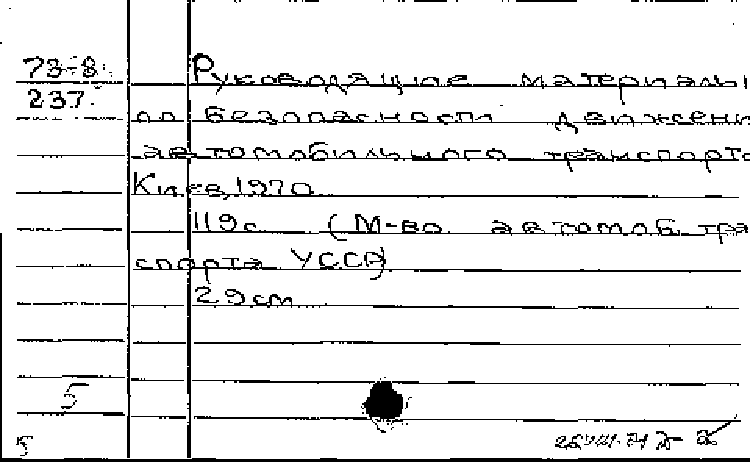 73-8
237
Руководящие материалы
по безопасности движени
автомобильного транспорта
Киев, 1970
119с. (М-во автомоб. тра
спорта УССР)
29см
5
5